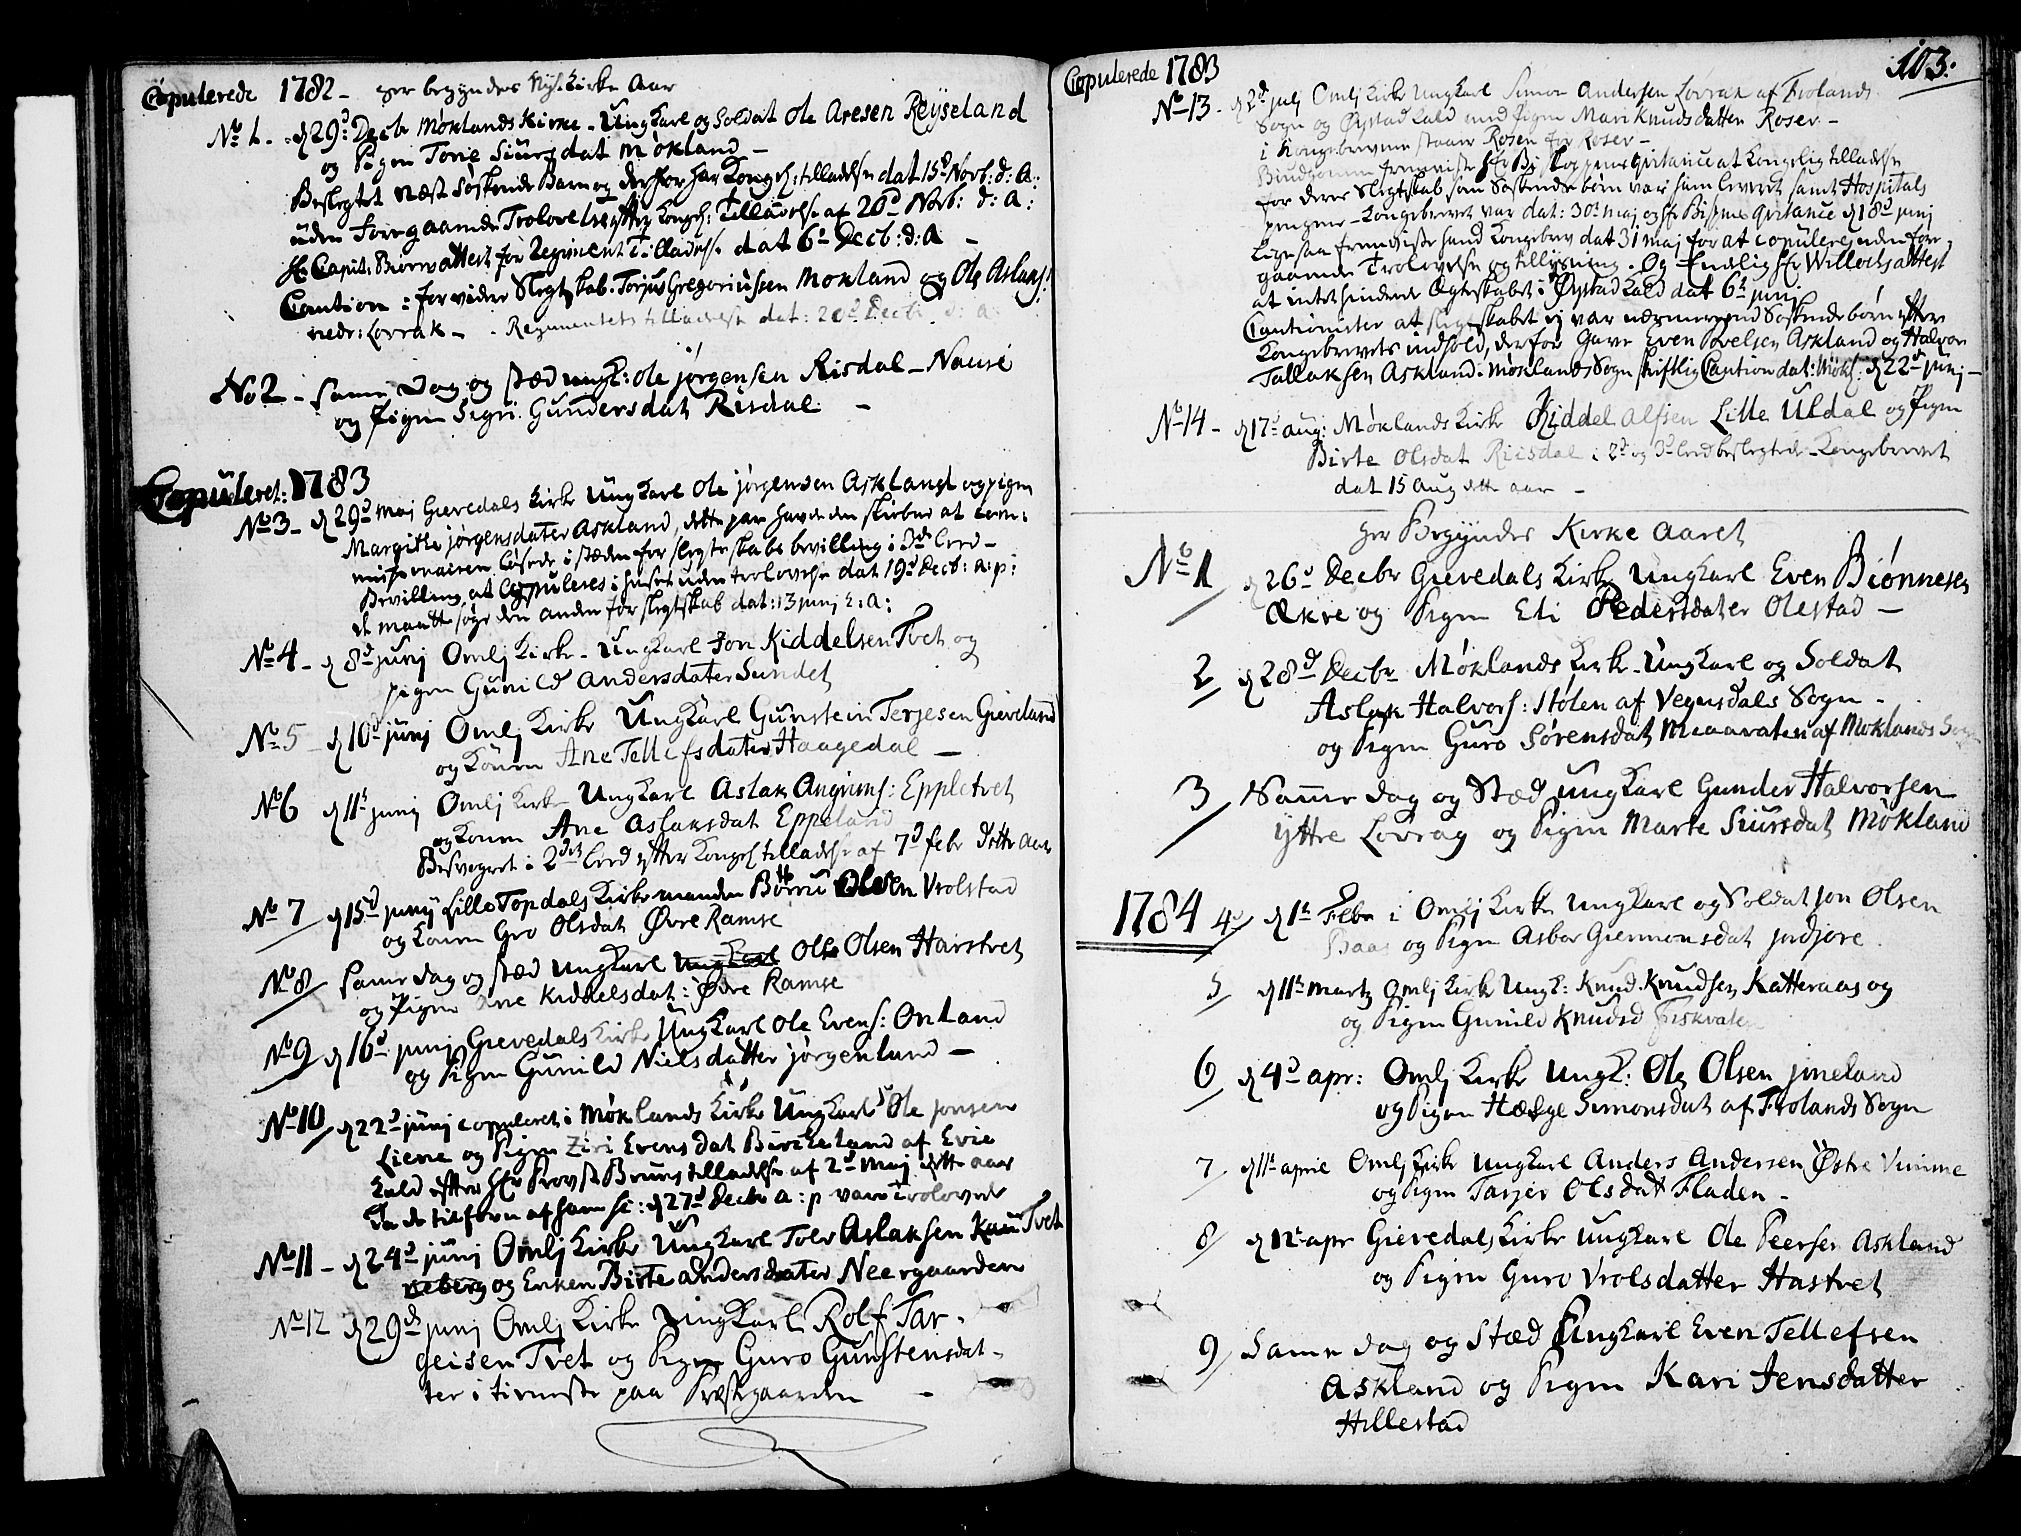 Copulerede 1782 - her begyndes Nyt Kirke Aar
No 1. d 29d Decbr Møklands Kirke - Ungkarl og Soldat Ole Aresen Reyseland
og Pigen Tone Siursdat Møkland -
Beslegtet næst Søskende Barn og derfor har Kongel: tilladelse dat 15d Novb: d: A:
uden Foregaaende Trolovelse efter Kongel: Tilladelse af 20d Novb: d: A:
Hr Capit: Biørns attest for Regiment Tilladelse dat 6t Decb: d: A -
Caution: for vidre Slegtskab. Torjus Gregoriussen Mokland og Ole Aslaks:
nedr: Lovrak - . Regimentets tilladelse dat: 20d Decbr d: a:
No 2 - Same Dag og stæd ungk: Ole Jørgensen Risdal - Nause
og Pigen Segri Gundersdat Risdal -
Copuleret: 1783
No 3 - d 29d Maj Gievedals Kirke Ungkarl Ole Jørgensen Askland og pigen
Margitte Jørgensdater Askland, dette par havde den skiebne at Com-
missionairen løsede i stæden for slegtskabs bevilling i 3die Leed -
Bevilling at Copuleres i huset uden trolovelse dat 19d Decb: a: p:
et maatte søge den anden for slegtskab dat: 13 junj h: a:
No 4 - d 8d junj Omlj Kirke - Ungkarl Jon Kiddelsen Tvet og
pigen Gunild Andersdater Sundet
No 5 - d 10d junj Omlj Kirke Ungkarl Gunstein Terjesen Gieveland
og Konen Ane Tellefsdater Haagedal -
No 6 d 11t junj Omlj Kirke Ungkarl Aslak Angrims: Eppletvet
og Konen Ane Aslaksdat Eppeland
Besvogret i 2det Leed efter Kongel tilladelse af 7d febr dette Aar
No 7 d 15d junij Lille Topdals Kirke manden Børru Olsen Vrolstad
og Konen Gro Olsdat Øvre Ramse
No 8 Same dag og stæd Ungkarl Ungkarl Ole Olsen Harstvet
og Pigen Ane Kiddelsdat: Øvre Ramse
No 9 d 16d junj Gievedals Kirke Ungkarl Ole Evens: Onland
og Pigen Gunild Nielsdatter Jørgenlund -
No 10 d 22d junj copuleret i Møklands Kirke Ungkarl Ole Jonsen
Liene og Pigen Ziri Evensdat Birkeland af Evie
Kald efter Hr Provst Bruns tilladelse af 2d Maj dette aar
Da de tilforn af ham sc: d 27d Decbr a: p vare Trolovede
No 11 - d 24d junj Omlj Kirke Ungkarl Tolv Aslaksen Tvet
og Enken Birte Andersdater Neergaarden
No 12 d 29d junj Omlj Kirke Ungkarl Rolf Tar-
geisen Tvet og Pigen Guro Gunstensdat-
ter i tieneste paa Præstgaarden -
Copulerede 1783
103.
No 13 - d 2d julj Omlj Kirke Ungkarl Simon Andersen Lovrak af Frolands
Sogn og Øystad Kald med Pigen Mari Knudsdatter Roser -
i Kongebrevene staaer Rosen for Roser -
Brudgommen fremviste Hr Biskoppens Qvitance at Kongelig tilladelse
for deres Slegtskab som Søskende børn var ham leveret samt Hospitals
pengene - Kongebrevet var dat: 30t maj og Hr Bispens Qvitance d 18d junj
Ligesaa fremviste hand Kongebrev dat 31 maj for at copuleres uden fore-
gaaende Trolovelse og tillysning. Og Endelig Hr Willochs attest
at intet hindrede Ægteskabet i Øystad Kald dat 6t junj
Cautionister at slegtskabet ej var nærmere end Søskendebørn efter
Kongebrevets indhold, derfor gave Even Povelsen Askland og Halvor
Tallaksen Askland. Møklands Sogn skriftlig Caution dat: Møkl: d 22d junj -
No 14 - d 17d aug: Møklands Kirke Kiddel Alfsen Lille Uldal og Pigen
Birte Olsdat Riisdal i 2d og 3d Leed beslegtede - Kongebrevet
dat 15 Aug dette aar -
Her Begyndes Kirke Aaret
No 1 d 26d Decbr Gievedals Kirke Ungkarl Even Biønnesen
Ækre og Pigen Eli Pedersdater Olestad -
2 d 28d Decbr Møklands Kirke - Ungkarl og Soldat
Aslak Halvors: Stølen af Vegusdals Sogn -
og Pigen Guro Sørensdat Meaavaten af Moklands Sogn
3 Samme dag og Stæd ungkarl Gunder Halvorsen
yttre Lovrag og Pigen Marte Siursdat Møkland
1784 4 d 1t Febr i Omlj Kirke Ungkarl og Soldat Jon Olsen
Haas og Pigen Asbor Giermonsdat jndjore.
5 d 11t Martz Omlj Kirke Ungk: Knud Knudsen Katteraas og
og Pigen Gunild Knudsd Fiskvaten
6 d 4d apr: Omlj Kirke Ungk: Ole Olsen jmeland
og Pigen Hælge Simonsdat af Frolands Sogn
7 d 11t april Omlj Kirke Ungkarl Anders Andersen Østre Vimme
og Pigen Tarjer Olsdatt Fladen -
8 d 12t apr Gievedals Kirke ungkarl Ole Peersen Askland
og Pigen Guro Vrolsdatter Hastvet
9 Same dag og Stæd Ungkarl Even Tellefsen
Askland og Pigen Kari Jensdatter
Hillestad